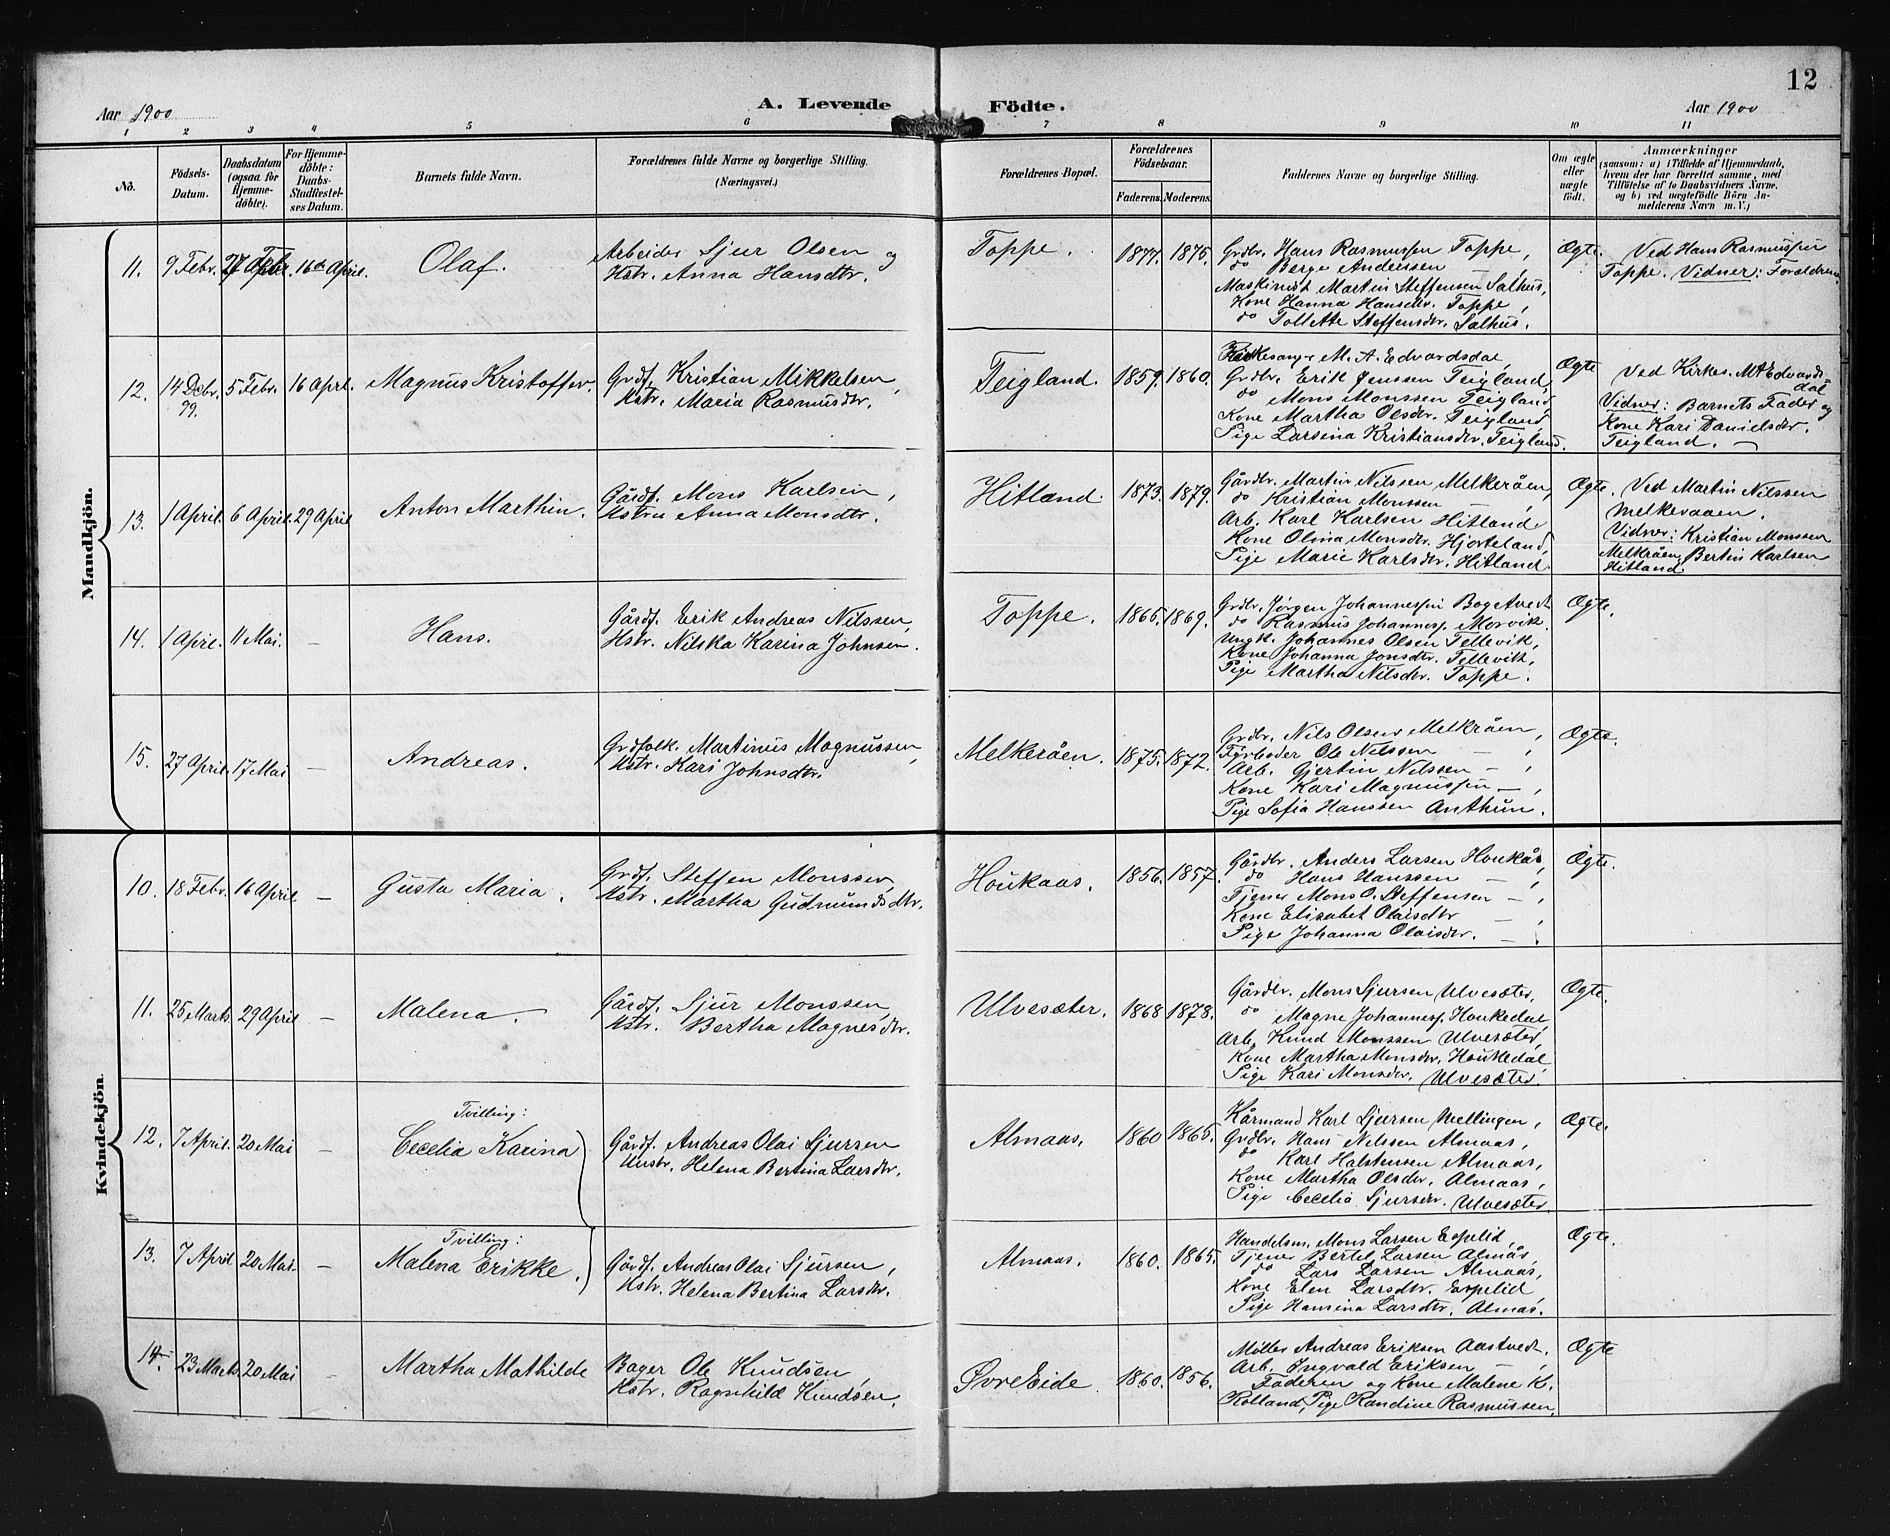 12
Aar 1900
A. Levende Födte.
Aar 1900
1 2 3 4 5 6 7 8 9 10 11
No.
Födsels-Datum.
Daabsdatum (ogsaa for Hjemme-døbte).
For Hjemme-døbte: Daabs-Stadfæstel-ses Datum.
Barnets fulde Navn.
Forældrenes fulde Navne og borgerlige Stilling. (Næringsvei.)
Forældrenes-Bopæl.
Forældrenes Födselsaar.
Faderens. Moderens.
Faddernes Navne og borgerlige Stilling.
Om ægte eller uægte født.
Anmærkninger
(saasom: a) i Tilfælde af Hjemmedaab, hvem der har forrettet samme, med Tilföielse af to Daabsvidners Navne, og b) ved uægtefödte Börn An-melderens Navn m. V.)
Mandkjön.
11. 9 Febr. 27 Febr. 16de April. Olaf.
Arbeider Sjur Olsen og
Hstr. Anna Hansdtr.
Toppe. 1877. 1875.
Grdbr. Hans Rasmussen Toppe,
do Berge Anderssen
Maskinist Martin Steffensen Salhus,
Kone Hanna Hansdtr. Toppe,
do Tollette Steffensdtr. Salhus.
Ægte.
Ved Hans Rasmussen
Toppe. Vidner: Forældrene.
12. 14 Debr. 99. 5 Febr. 16 Aprl. Magnus Kristoffer.
Grdf. Kristian Mikkelsen,
Hstr. Maria Rasmusdtr.
Teigland. 1859. 1860.
Kirkesanger M. A. Edvardsdal,
Grdbr. Erik Jenssen Teigland,
do Mons Monssen Teigland,
Kone Martha Olsdtr. Teigland,
Pige Larsina Kristiansdtr. Teigland.
Ægte
Ved Kirkes. M A Edvards-
dal
Vidner: Barnets Fader og
Kone Kari Danielsdtr.
Teigland. –
13. 1 April. 6 April. 29 April Anton Marthin.
Gårdf. Mons Karlsen,
Hstru Anna Monsdtr.
Hitland. 1873. 1879.
Gårdbr. Martin Nilssen Melkeråen,
do Kristian Monssen – ,
Arb. Karl Karlsen Hitland
Kone Olina Monsdtr. Hjorteland,
Pige Marie Karlsdtr. Hitland.
Ægte.
Ved Martin Nilssen
Melkeraaen.
Vidner: Kristian Monssen
Melkråen, Bertin Karlsen
Hitland.
14. 1 April. 11 Mai. – Hans.
Gårdf. Erik Andreas Nilssen,
Hstr. Nilska Karina Johnsen.
Toppe. 1865. 1869.
Grdbr. Jørgen Johannessen Bogetvedt
do Rasmus Johannesp. Morvik.
Ungk. Johannes Olsen Tellevik,
Kone Johanna Jonsdtr. Tellevik,
Pige Martha Nilsdtr. Toppe.
Ægte.
15. 27 April. 17 Mai – Andreas.
Grdfolk. Martinus Magnussen,
Hstr. Kari Johnsdtr.
Melkeråen. 1875. 1872.
Grdbr. Nils Olsen Melkråen,
Fyrbøder Ole Nilssen – ,
Arb. Gjertin Nilssen – ,
Kone Kari Magnussen – ,
Pige Sofia Hanssen Anthun.
Ægte.
Kvindekjön.
10. 18 Febr. 16 April – Gusta Maria.
Grdf. Steffen Monssen,
Hstr. Martha Gudmundsdtr.
Houkaas. 1856. 1857.
Gårdbr. Anders Larsen Houkås,
do Hans Hanssen – ,
Tjener Mons O. Steffensen – ,
Kone Elisabet Olaisdtr – ,
Pige Johanna Olaisdtr. – .
Ægte.
11. 25 Marts. 29 April – Malena.
Gårdf. Sjur Monssen,
Hstr. Bertha Magnesdtr.
Ulvesæter. 1868 1878.
Gårdbr. Mons Sjursen Ulvesæter,
do Magne Johannesp. Houkedal
Arb. Knud Monssen Ulvesæter,
Kone Martha Monsdtr. Houkedal
Pige Kari Monsdtr. Ulvesæter.
Ægte.
12. 7 April. 20 Mai – Tvilling:
Cecelia Karina
Gårdf. Andreas Olai Sjursen
Hustr. Helena Bertina Larsdtr.
Almaas. 1860 1865.
Kårmand Karl Sjursen Mellingen,
Grdbr. Hans Nilssen Almaas,
do Karl Halstensen Almaas,
Kone Martha Olsdtr. Almaas,
Pige Cecelia Sjursdtr. Ulvesæter.
Ægte.
13. 7 April 20 Mai. – Tvilling:
Malena Erikke.
Gårdf. Andreas Olai Sjursen,
Hstr. Helena Bertina Larsdtr.
Almaas. 1860. 1865.
Handelsm. Mons Larsen Espelid,
Tjener Bertel Larsen Almås,
do Lars Larsen Almaas,
Kone Elen Larsdtr. Espelid
Pige Hansina Larsdtr. Almås.
Ægte.
14. 23 Marts. 20 Mai – Martha Mathilde
Bager Ole Knudsen,
Hstr. Ragnhild Knudsen.
Øvre Eide 1860. 1856.
Møller Andreas Eriksen Aastvedt.
Arb. Ingvald Eriksen – ,
Faderen og Kone Malene K.
Rolland, Pige Randine Rasmussen.
Ægte